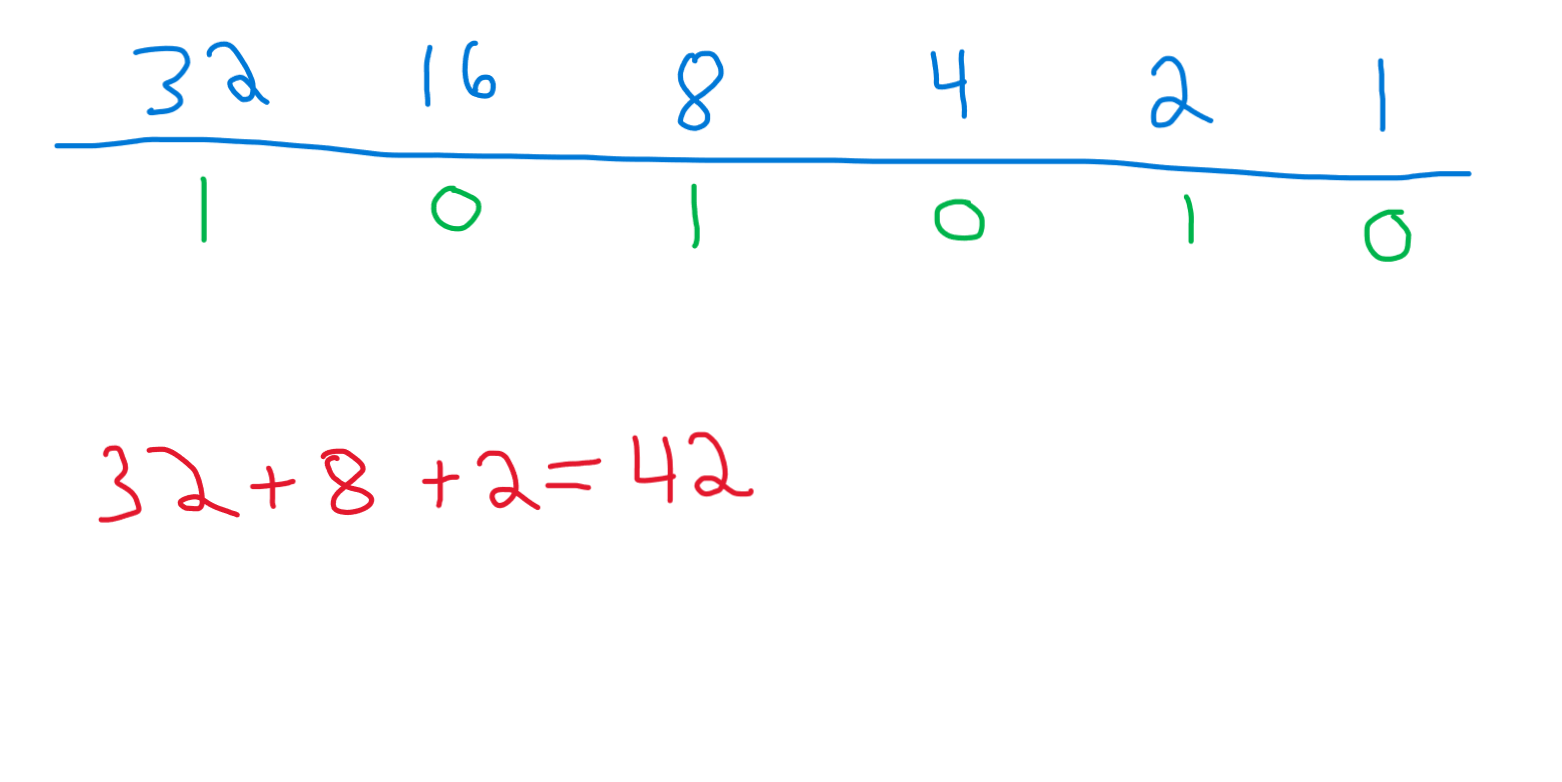 32 16 8 4 2 1
1 0 1 0 1 0
32+8+2=42